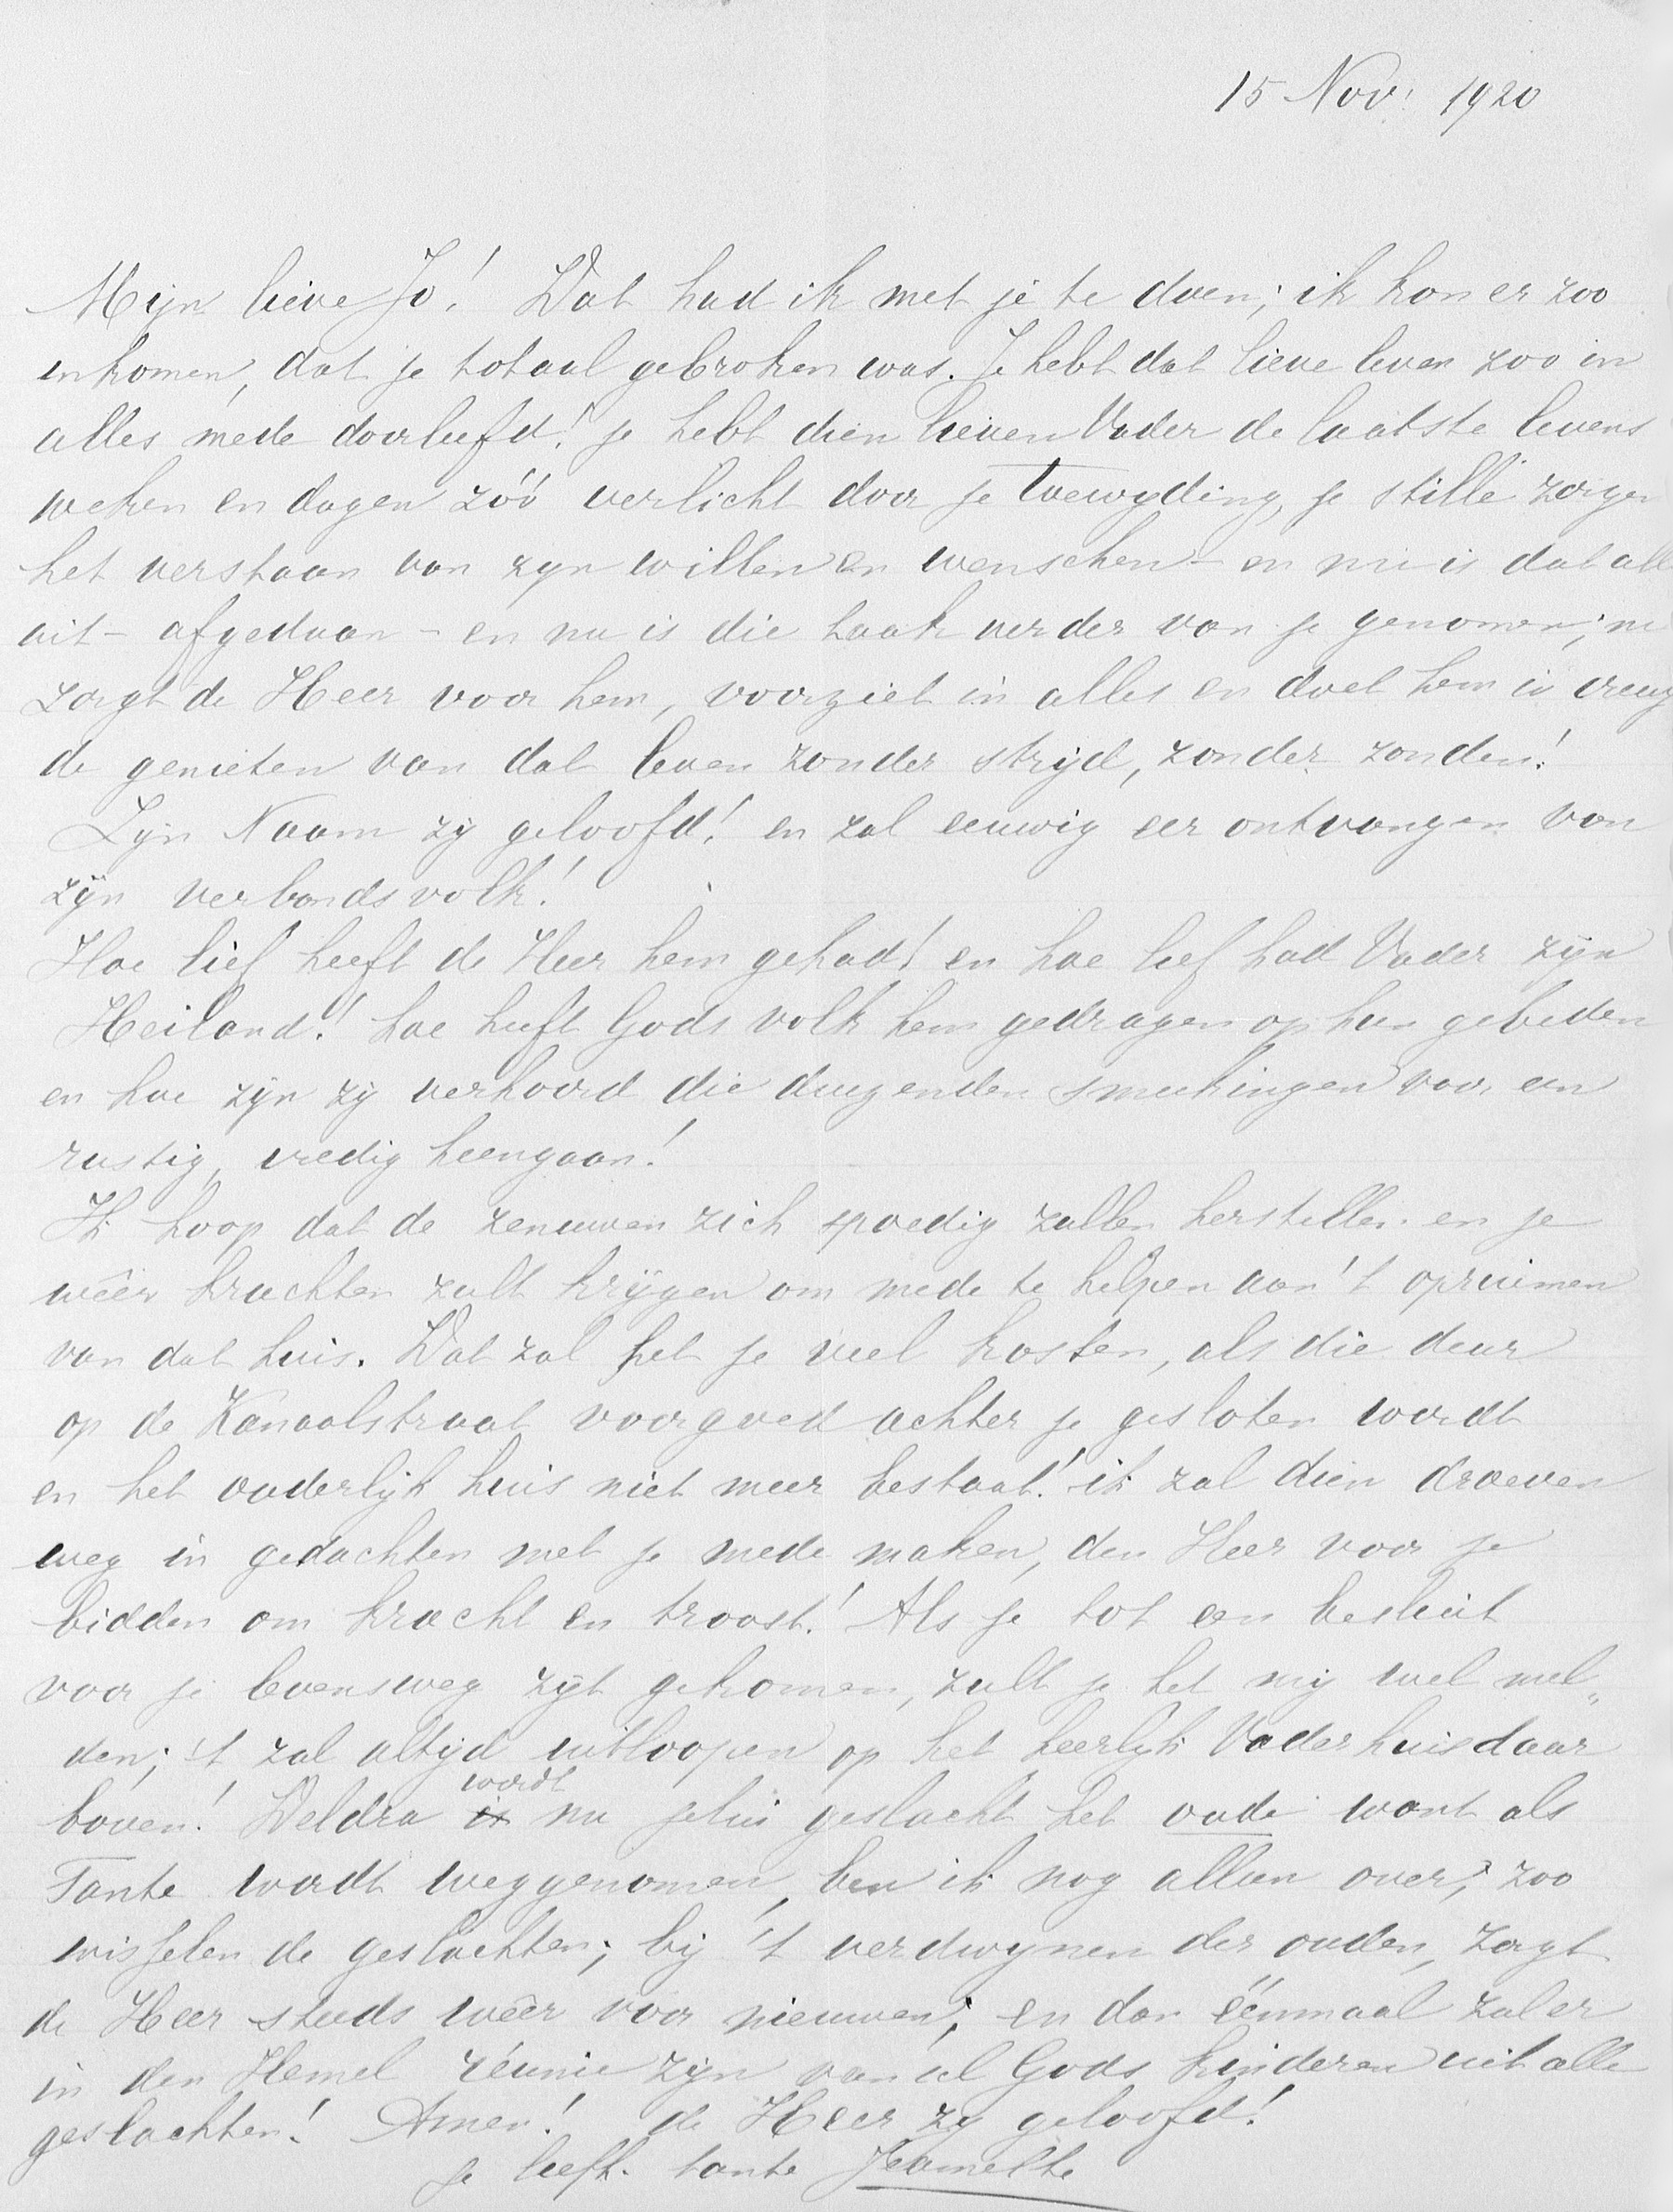 15 Nov. 1920
Mijn lieve Jo! Wat had ik met je te doen; ik kon er zoo
inkomen, dat je totaal gebroken was. Je hebt dat lieve leven zoo in
alles mede doorleefd! je hebt dien lieven Vader de laatste levens
weken en dagen zóó verlicht door je toewyding, je stille zorgen
het verstaan van zyn willen en wenschen - en nu is dat alles
uit - afgedaan - en nu is die taak verder van je genomen; nu
zorgt de Heer voor hem, voorziet in alles en doet hem in vreug
de genieten van dat leven zonder strijd, zonder zonden!
Zijn Naam zij geloofd! en zal eeuwig eer ontvangen van
zijn verbondsvolk!
Hoe lief heeft de Heer hem gehad! en hoe lief had Vader zijn
Heiland! hoe heeft Gods volk hem gedragen op hun gebeden
en hoe zijn zij verhoord die duizenden smeekingen voor een
rustig, vredig heengaan!
Ik hoop dat de zenuwen zich spoedig zullen herstellen en je
wêer krachten zult krijgen om mede te helpen aan 't opruimen
van dat huis. Wat zal het je veel kosten, als die deur
op de Kanaalstraat voorgoed achter je gesloten wordt
en het ouderlijk huis niet meer bestaat! ik zal dien droeven
weg in gedachten met je mede maken, den Heer voor je
bidden om kracht en troost! Als je tot een besluit
voor je levensweg zijt gekomen, zult je het mij wel mel„
den; 't zal altijd uitloopen op het heerlijk Vaderhuis daar
boven! Weldra wordt nu jelui geslacht het oude want als
Tante wordt weggenomen, ben ik nog alleen over; zoo
wisselen de geslachten; bij 't verdwynen der ouden, zorgt
de Heer steeds wêer voor nieuwen; en dan éénmaal zal er
in den Hemel réunie zijn van al Gods kinderen uit alle
geslachten! Amen! de Heer zij geloofd!
je liefh. tante